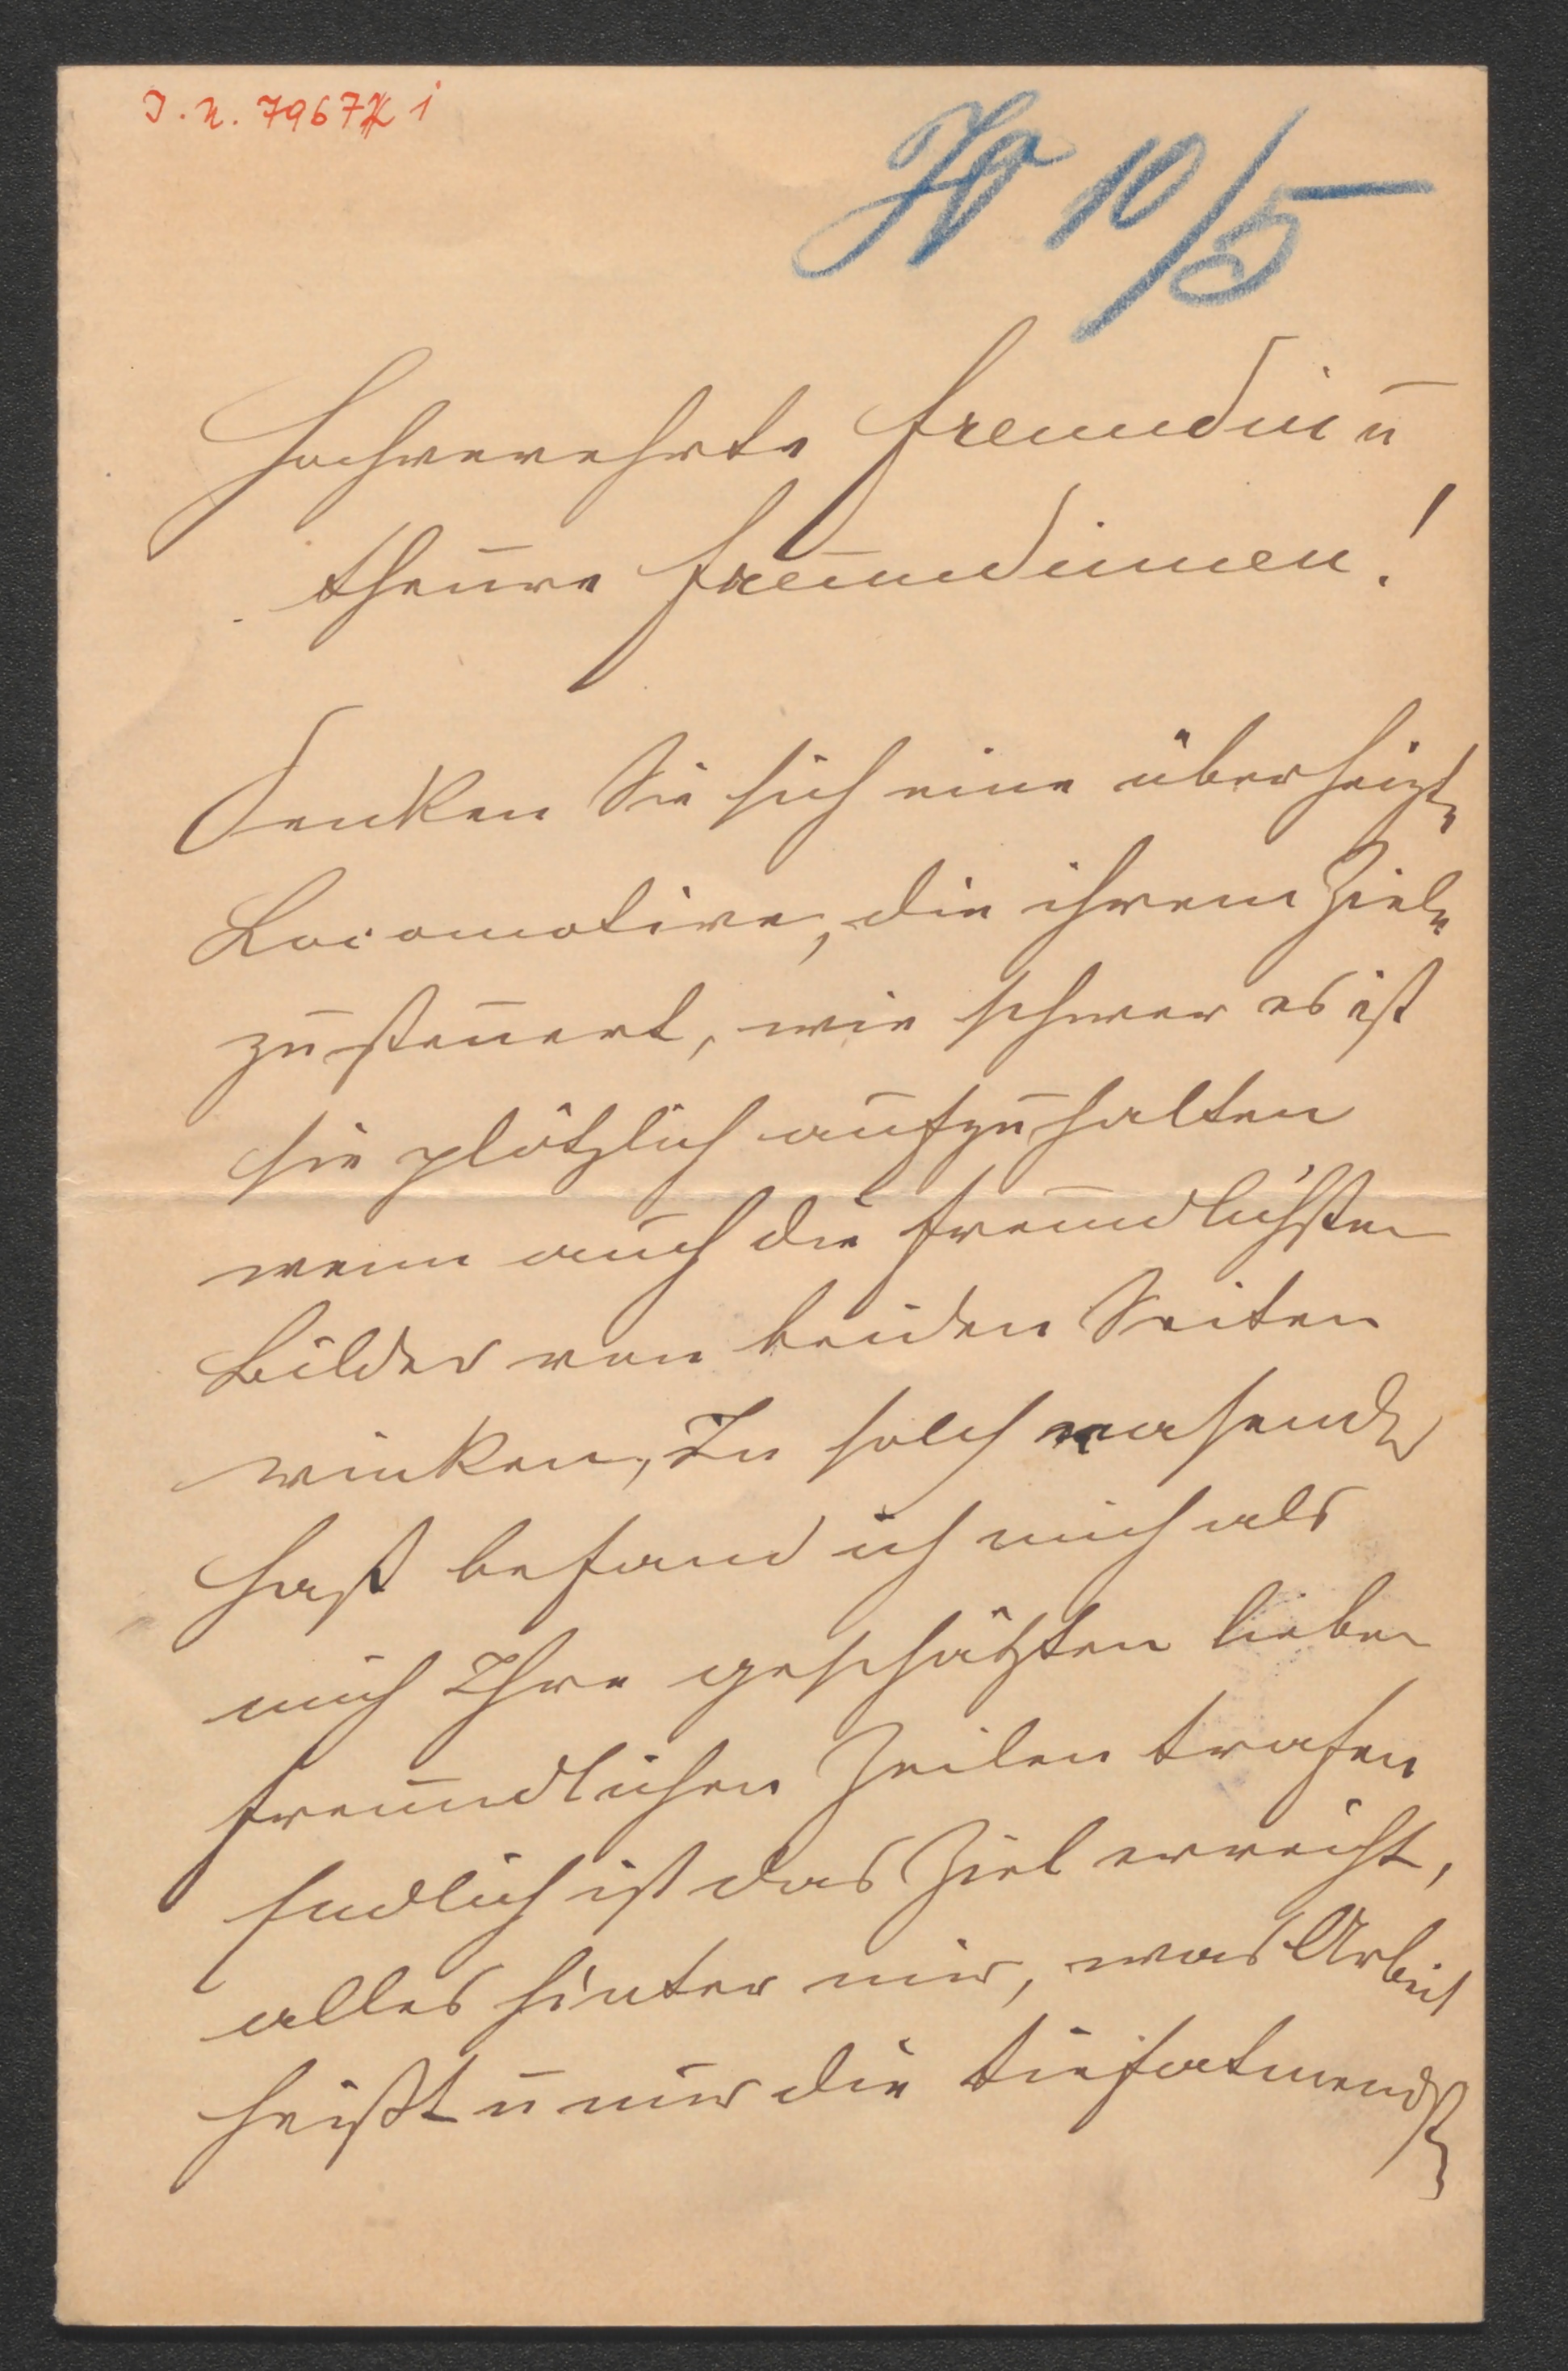 I. N. 79677 i
10/5
Hochverehrte Freundin u
theure Freundinnen!
Denken Sie sich eine überheizte
Locomotive, die ihrem Ziele
zusteuert, wie schwer es ist
sie plötzlich aufzuhalten
wenn auch die freundlichsten
Bilder von beiden Seiten
winken, In solch rasender
Hast befand ich mich als
mich Ihre geschätzten lieben
freundlichen Zeilen trafen
Endlich ist das Ziel erreicht,
alles hinter mir, was Arbeit
heißt u nur die tiefatmende